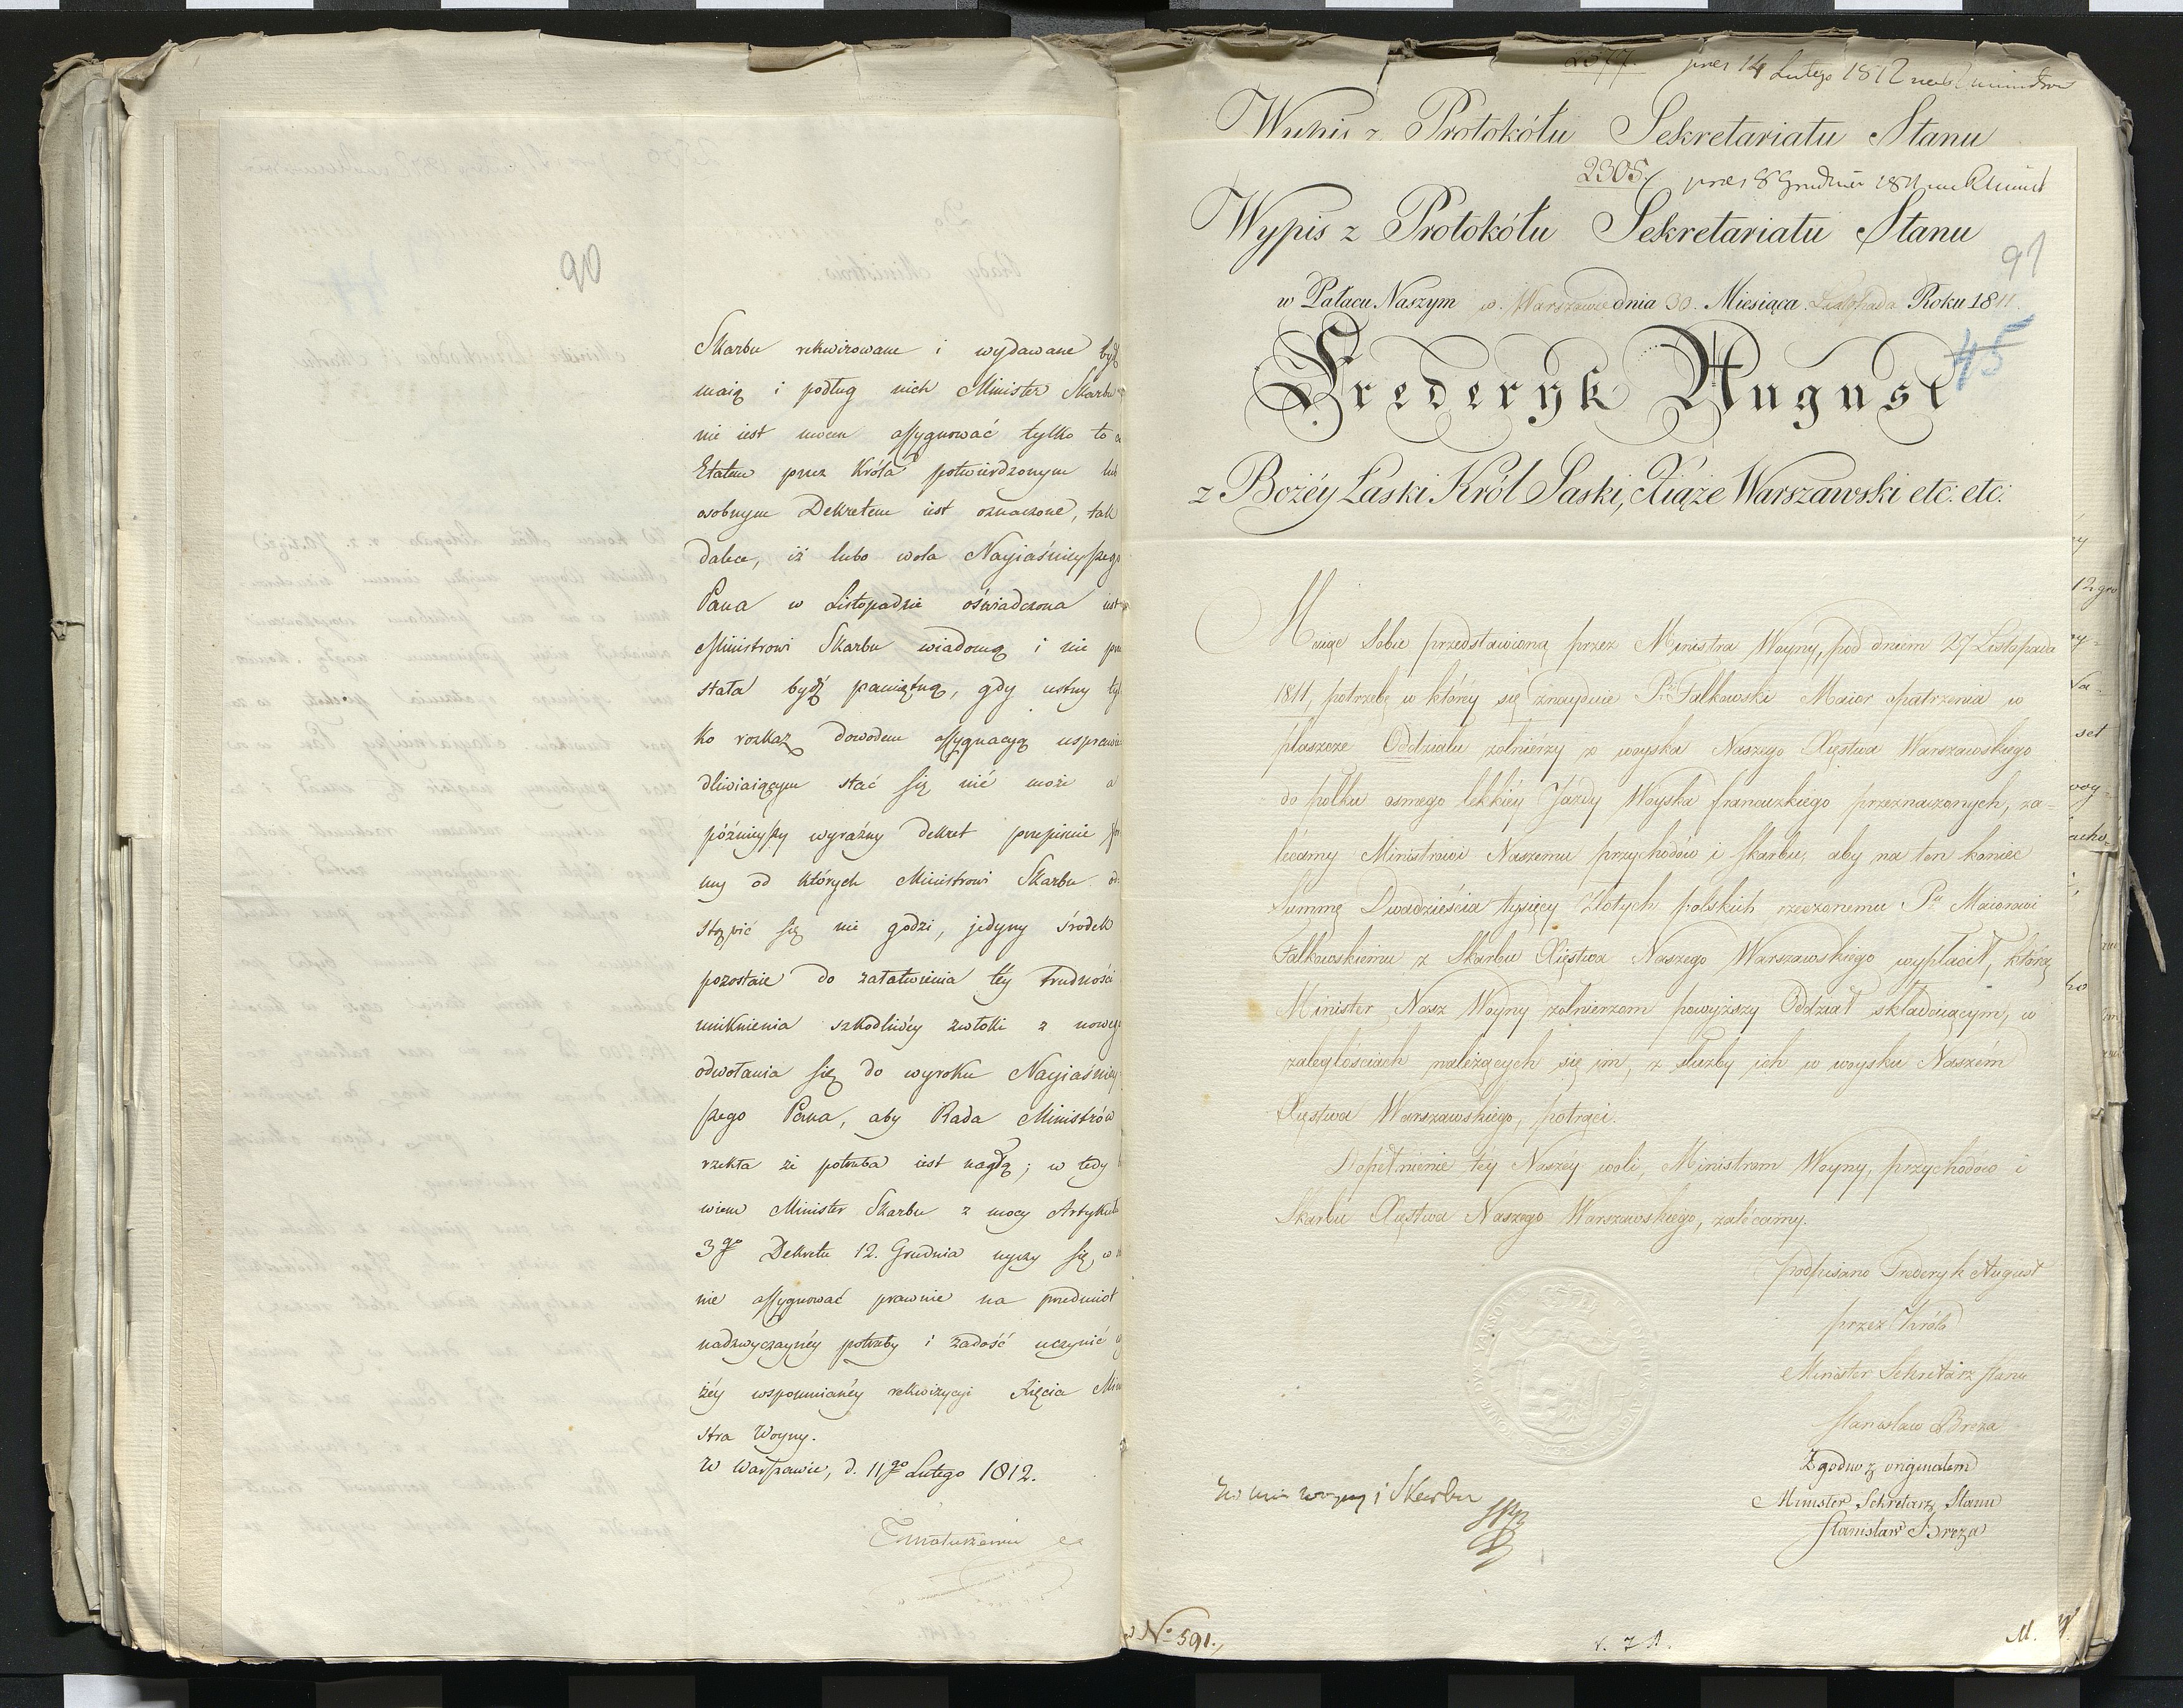 90
Skarbu rekwirowane i wydawane bydź
maią i podług nich Minister Skarbu
nie iest mocen assygnować tylko to co
Etatem przez Króla potwierdzonym lub
osobnym Dekretem iest oznaczone, tak
dalece, iż lubo wola Nayiaśnieyszego
Pana w Listopadzie oświadczona iest
Ministrowi Skarbu wiadomą i nie prze
stała bydź pamiętną, gdy ustny tyl
ko rozkaz dowodem assygnacyą usprawie
dliwiaiącym stać się nie może a
późnieyszy wyraźny dekret przepisuie for
my od których Ministrowi Skarbu od
stąpić się nie godzi, jedyny środek
pozostaie do załatwienia téy trudności
uniknienia szkodliwéy zwłoki z nowego
odwołania się do wyroku Nayiaśniey
szego Pana, aby Rada Ministrów
rzekła że potrzeba iest nagłą; w tedy
wiem Minister Skarbu z mocy Artykułu
3go Dekretu 12. Grudnia uyrzy się w
nie assygnować prawnie na przedmiot
nadzwyczaynéy potrzeby i zadość uczynić
żéy wspomnianéy rekwizycyi Xięcia Mini
stra Woyny.
W Warszawie, d. 11go Lutego 1812.
TMatuszewic
2377. prez 14 Lutego 1812
Wypis z Protokółu Sekretariatu Stanu
2305. prez 8 Grudnia 1811
Wypis z Protokółu Sekretariatu Stanu
91
w Pałacu Naszym w Warszawie dnia 30. Miesiąca Listopada Roku 1811.
45
Frederyk August
z Bożéy Łaski Król Saski, Xiąże Warszawski etc: etc:
Maiąc Sobie przedstawioną przez Ministra Woyny, pod dniem 27 Listopada
1811, potrzebę w któréy się znayduie Pn Falkowski Maior opatrzenia w
płaszcze Oddziału żołnierzy z woyska Naszego Xięstwa Warszawskiego
do połku osmego lekkiéy Jazdy Woyska francuzkiégo przeznaczonych, za-
lécamy Ministrowi Naszemu przychodów i skarbu, aby na ten koniec
Summę Dwadzieścia tysięcy Złotych polskich rzeczonemu Pu Maiorowi
Falkowskiemu z Skarbu Xięstwa Naszego Warszawskiego wypłacił, którą
Minister Nasz Woyny żołnierzom powyższy Oddział składaiącym, w
zaległościach należących się im, z służby ich w woysku Naszém
Xięstwa Warszawskiego, potrąci.
Dopełnienie téy Naszéy woli, Ministrom Woyny, przychodów i
Skarbu Xięstwa Naszego Warszawskiego, zalécamy.
podpisano Frederyk August
przez Króla
Minister Sekretarz Stanu
Stanisław Breza
Zgodno z originałem
Minister Sekretarz Stanu
Stanisław Breza
Woyny i Skarbu
No 591.
M. W.